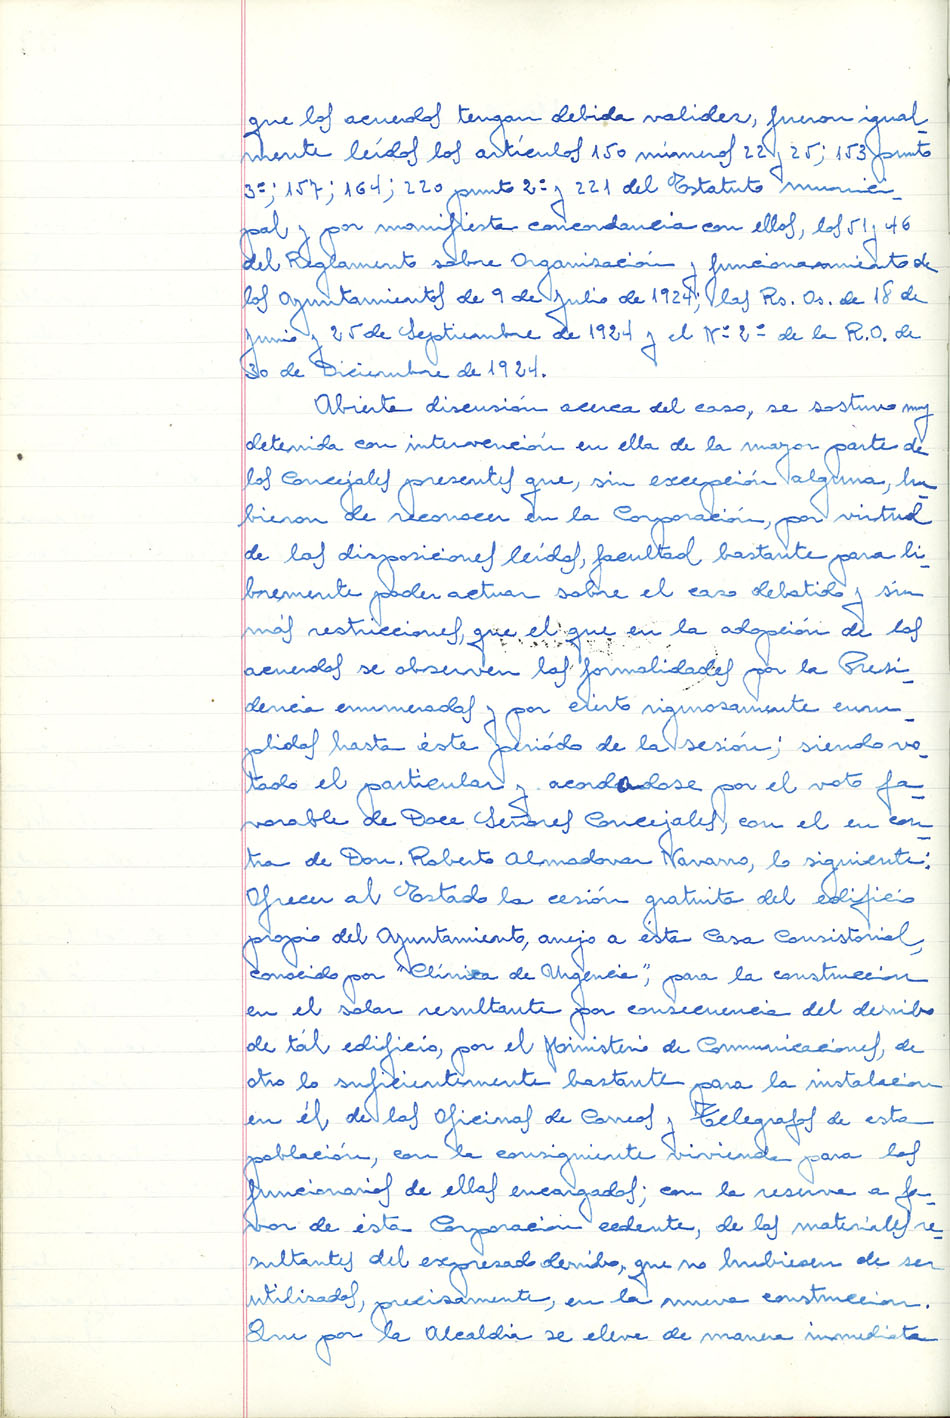 que los acuerdos tengan debida validez, fueron igual-
mente leídos los artículos 150 números 22 y 25; 153 punto
3º; 157; 164; 220 punto 2º y 221 del Estatuto munici-
pal y por manifiesta concordancia con ellos, los 51 y 46
del Reglamento sobre Organisación y funcionamiento de
los Ayuntamientos de 9 de Julio de 1924; las Rs. Os. de 18 de
Junio y 25 de Septiembre de 1924 y el Nº 2º de la R.O. de
30 de Diciembre de 1924.
Abierta discusión acerca del caso, se sostuvo muy
detenida con intervención en ella de la mayor parte de
los Concejales presentes que, sin excepción alguna, hu-
bieron de reconocer en la Corporación, por virtud
de las disposiciones leídas, facultad bastante para li-
bremente poder actuar sobre el caso debatido y sin
más restricciones, que el que en la adopción de los
acuerdos se observen las formalidades por la Presi-
dencia enumeradas y por cierto rigurosamente cum-
plidas hasta éste periódo de la sesión; siendo vo-
tado el particular y acordadose por el voto fa-
vorable de Doce Señores Concejales, con el en con-
tra de Don. Roberto Almadovar Navarro, lo siguiente:
Ofrecer al Estado la cesión gratuita del edificio
propio del Ayuntamiento, anejo a ésta Casa Consistorial,
conocido por "Clínica de Urgencia", para la construccion
en el solar resultante por consecuencia del derribo
de tál edificio, por el Ministerio de Comunicaciones, de
otro lo suficientemente bastante para la instalacion
en él, de las Oficinas de Correos y Telegrafos de esta
población, con la consiguiente vivienda para los
funcionarios de ellas encargados; con la reserva a fa-
vor de ésta Corporación cedente, de los materiales re-
sultantes del expresado derribo, que no hubiesen de ser
utilisados, precisamente, en la nueva construccion.
Que por la Alcaldia se eleve de manera inmediata